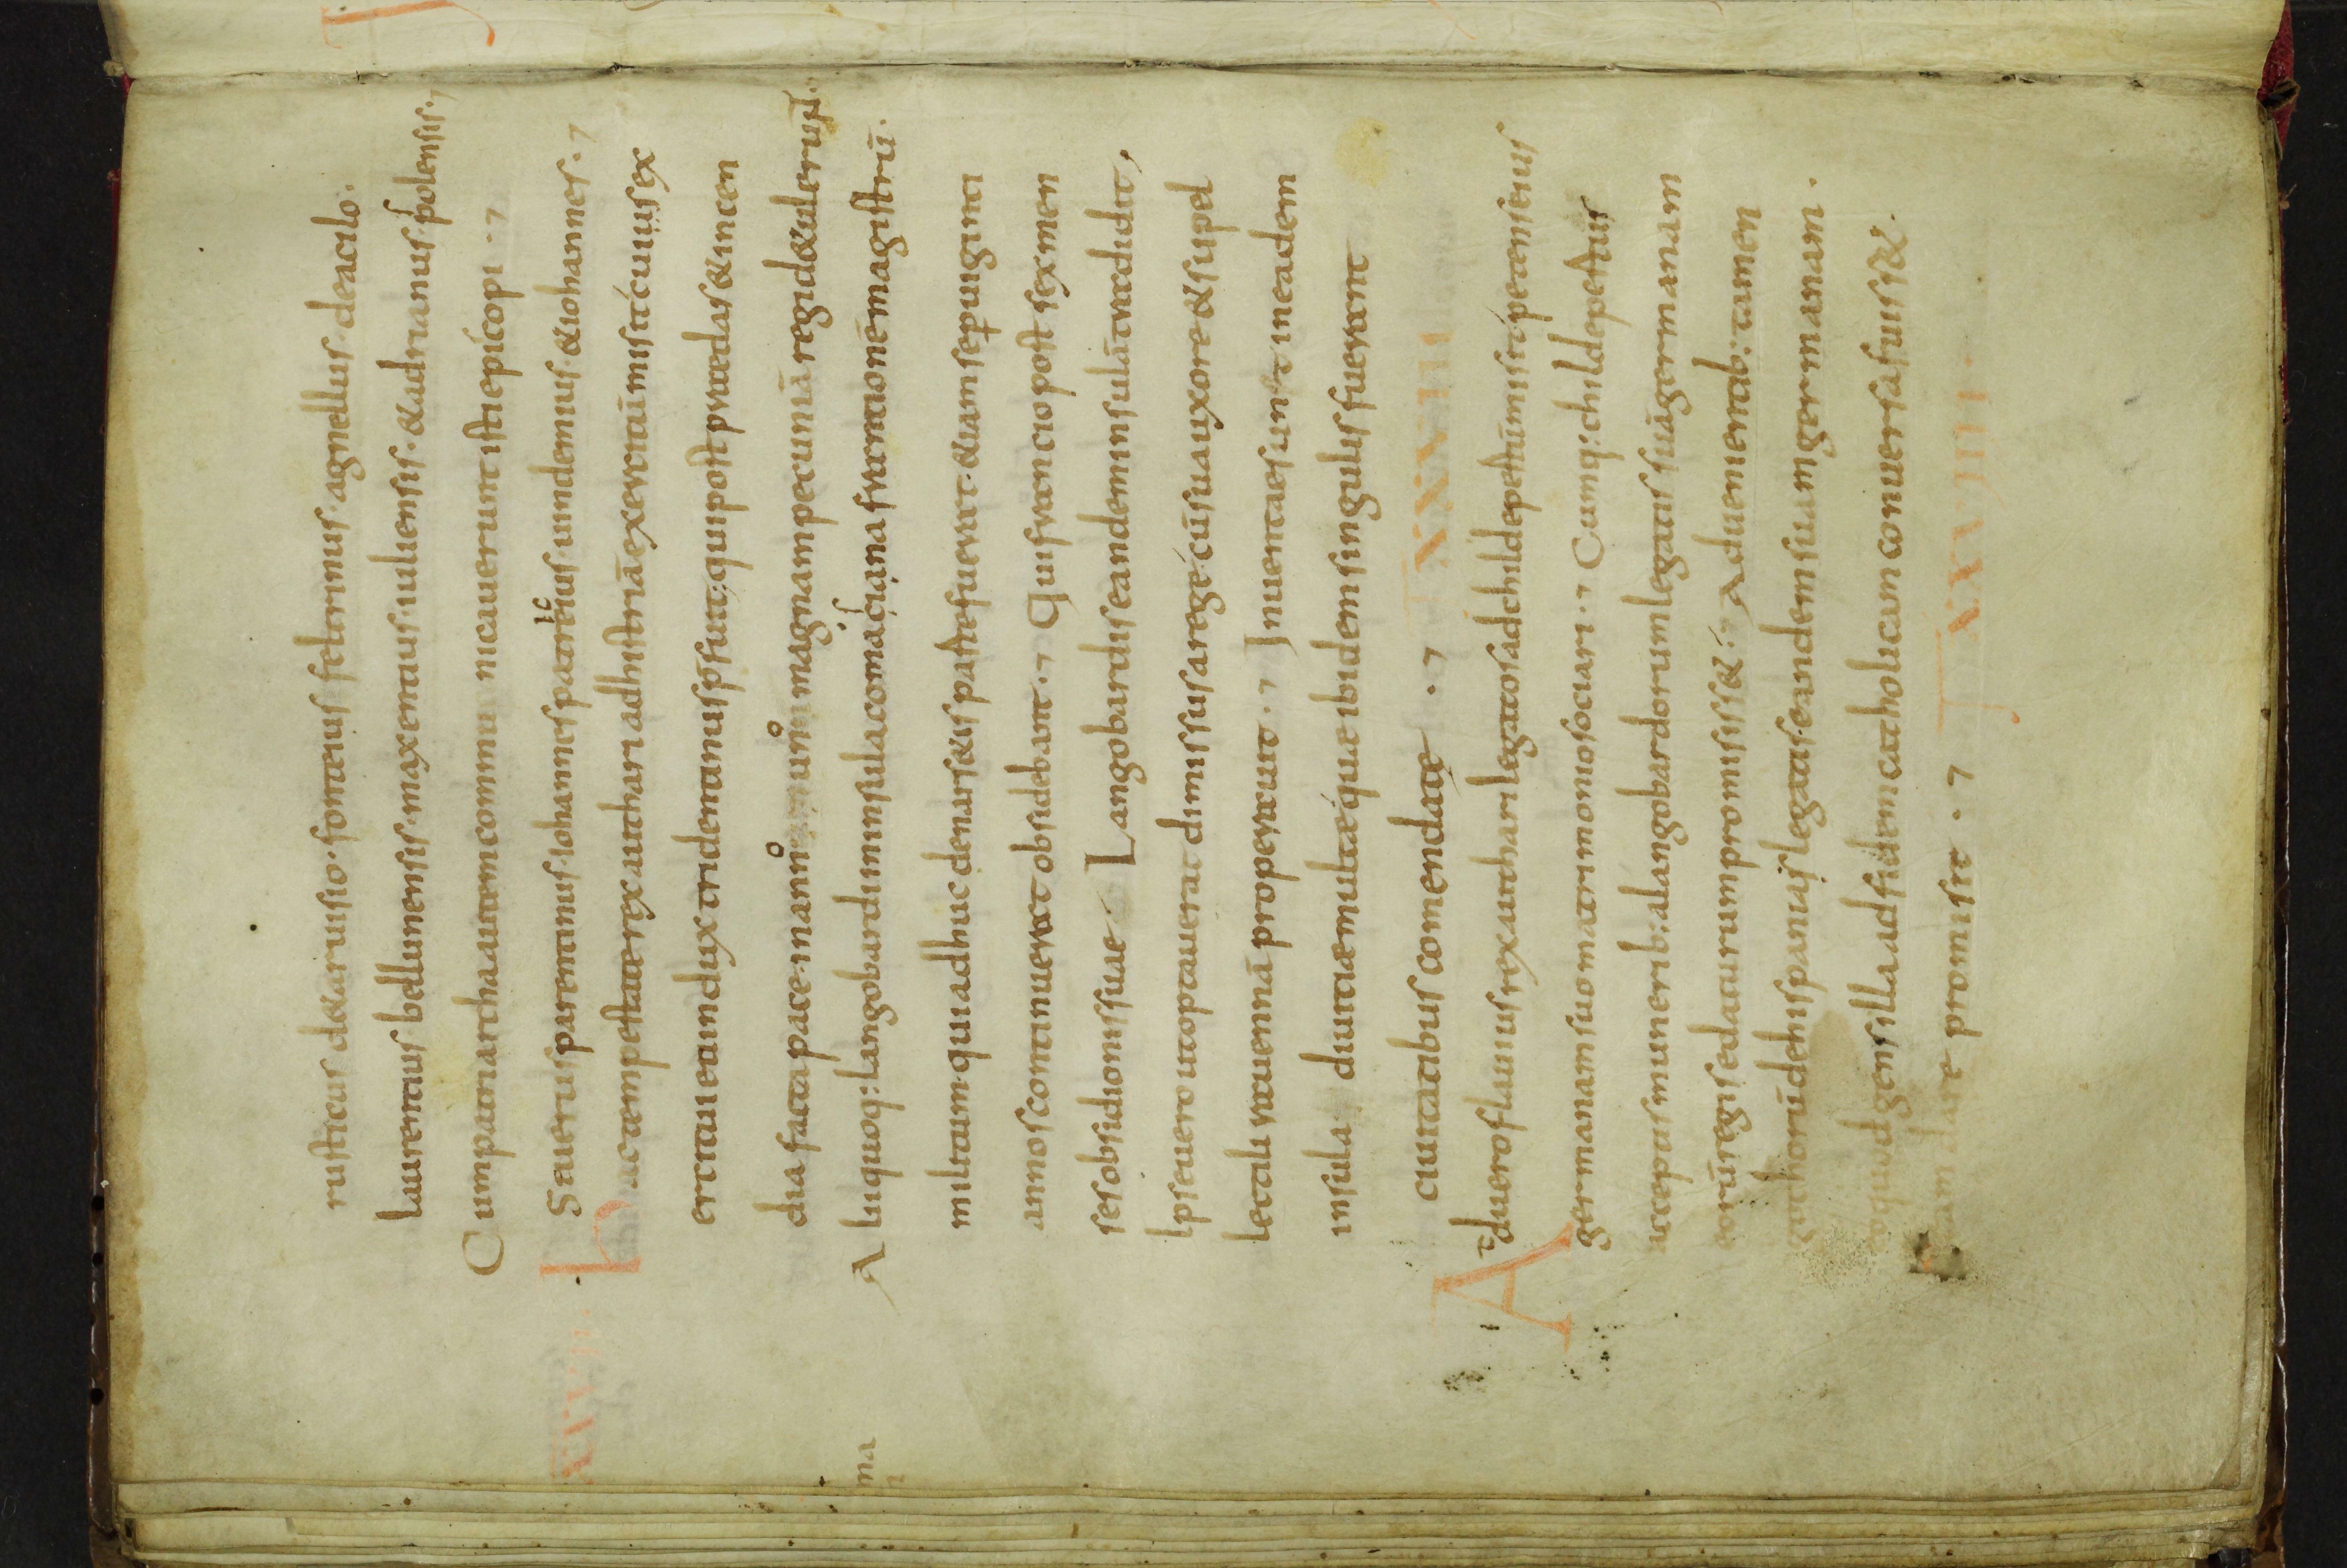 rusticus de&aruisio · fonteius feltrinus · agnellus · deacilo:
laurentius bellunensis · maxentius · iuliensis · &adrianus · polensis ·
Cumpatriarcha autem communicauerunt isti epıscopi · ·
Seuerus parentinus · iohannes patricius · uindemius · &iohannes ·
XXVII hac tempestate rex authari adhistriā exercitū misit cuius ex
ercitui euin dux tridentinus p̄fuit; qui post praedas &incen
dia facta pace in annū unū magnam pecuniā regi d&ulerunt ·
Alii quoq; langobardi in insula comacina francionē magistrū ·
militum · qui adhuc de narsetis parte fuerat · &iam se per uiginti
annos continuerat obsidebant · Qui francio post sex men
ses obsidionis suae Langobardis eandem insulā tradidit,
Ipse uero ut optauerat dimissus a rege cū sua uxore & supel
lectili rauennā properauit · Inuentae sunt in eadem
insula diuitiae multae quae ibidem singulis fuerant
ciuitatibus comendate · XXVIII
At uero flauius rex authari legatos ad childepertū misit petens eius
germanam suo matrimonio sociari · Cumq; childepertus
acceptis munerib; a langobardorum legatis suā germanam
eorū regi se daturum promisiss& · Aduenientib; tamen
gothorū de hispaniis legatis eandem suam germanam ·
eo quod gens illa ad fidem catholicam conuersa fuiss& ·
eam dare promisit · XXVIIII ·